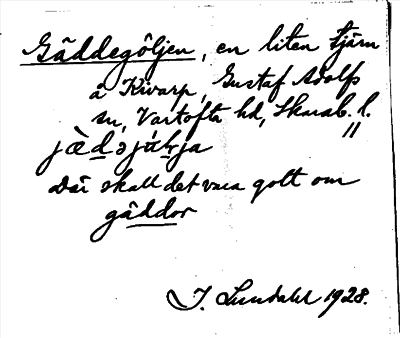 Gäddegöljen, en liten tjärn
å Kivarp, Gustaf Adolfs
sn, Vartofta hd, Skarab. l.
jæ̀dəju̇ḷja
Där skall det vara gott om
gäddor
J. Lundahl 1928.